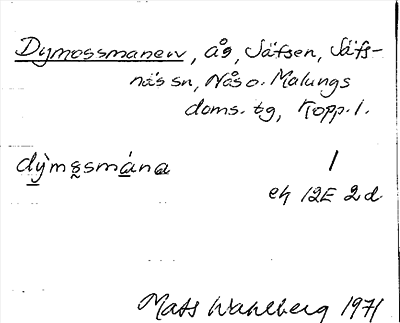 Dymossmanen, ås, Säfsen, Säfs-
näs sn, Nås o. Malungs
doms. tg, Kopp. l.
dỳmǫssmánạ /
ek 12E 2d
Mats Wahlberg 1971